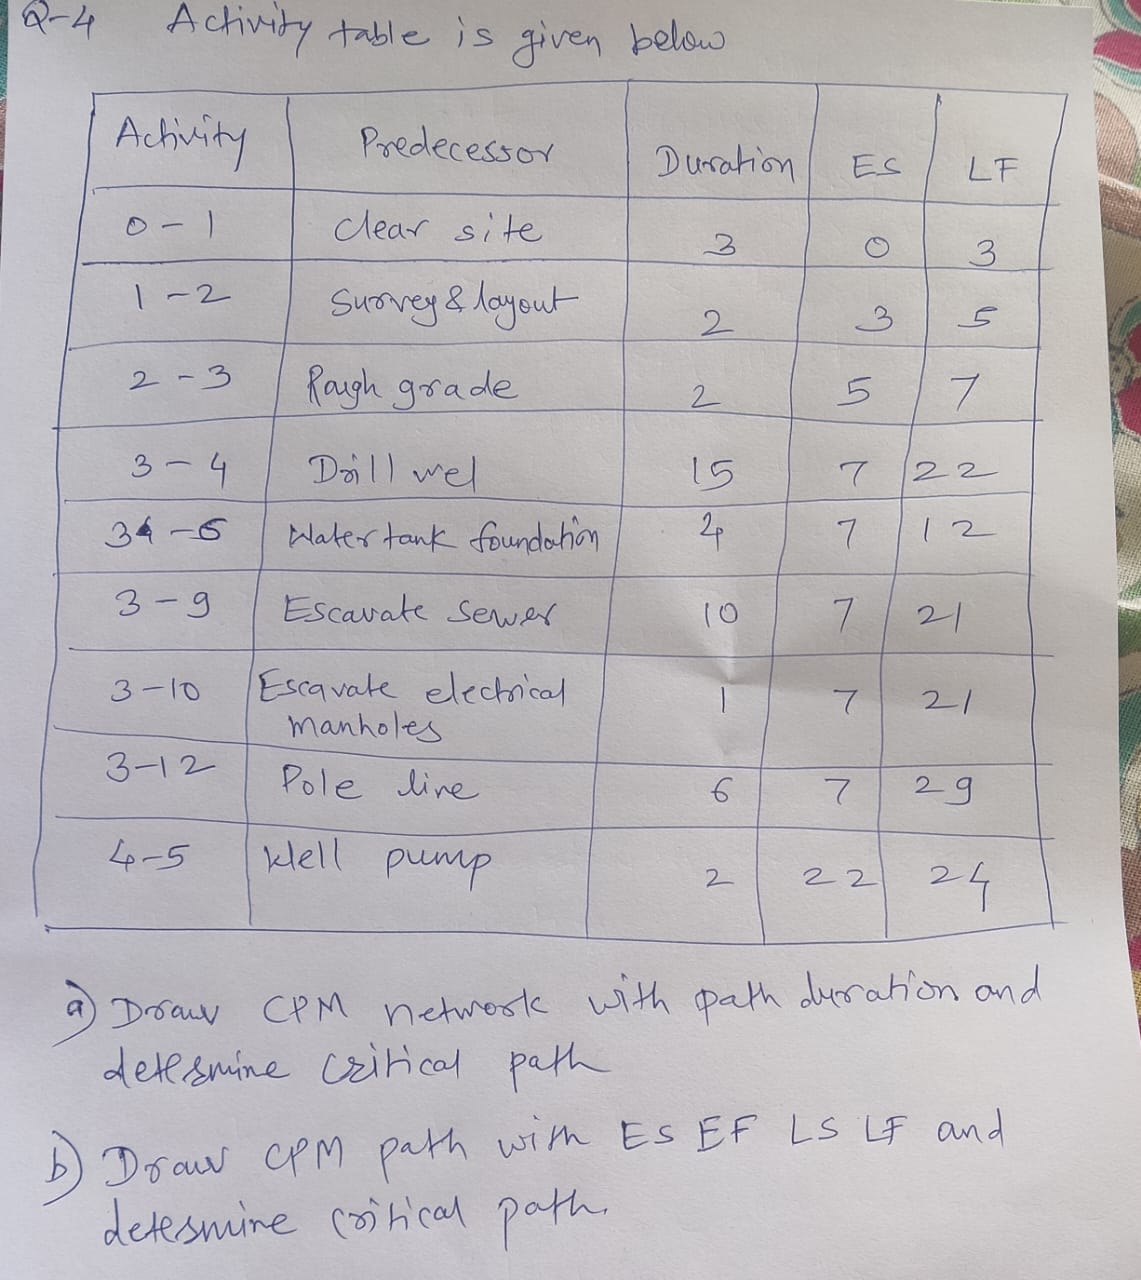 Q-4 Activity table is given below
Activity Predecessor Duration ES LF
0-1 Clear site 3 0 3
1-2 Survey & layout 2 3 5
2-3 Rough grade 2 5 7
3-4 Drill wel 15 7 22
34-6 Water tank foundation 4 7 12
3-9 Escavate sewer 10 7 21
3-10 Escavate electrical 1 7 21
manholes
3-12 Pole line 6 7 29
4-5 Well pump 2 22 24
a) Draw CPM network with path duration and
determine critical path
b) Draw CPM path with ES EF LS LF and
determine critical path.